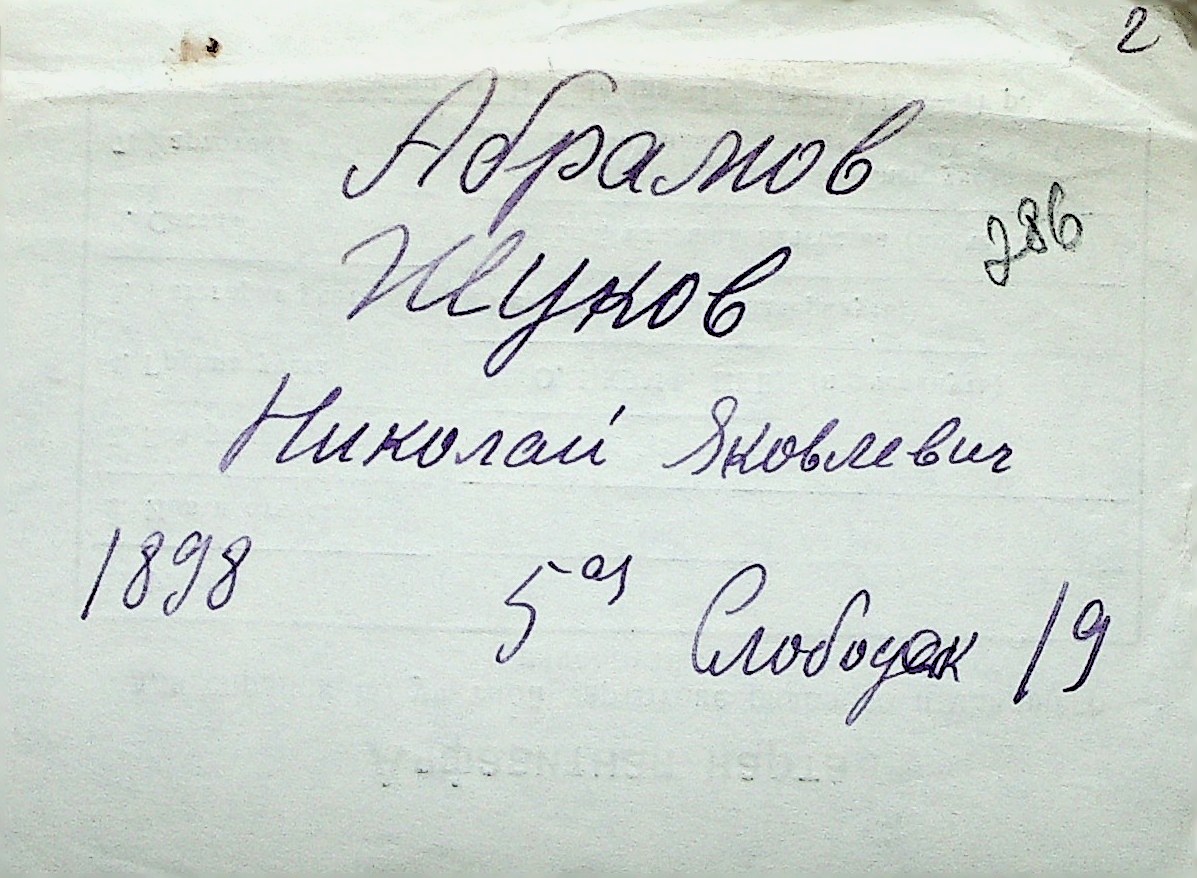 2
Абрамов
286
Жуков
Николай Яковлевич
1898 5ая Слободск 19